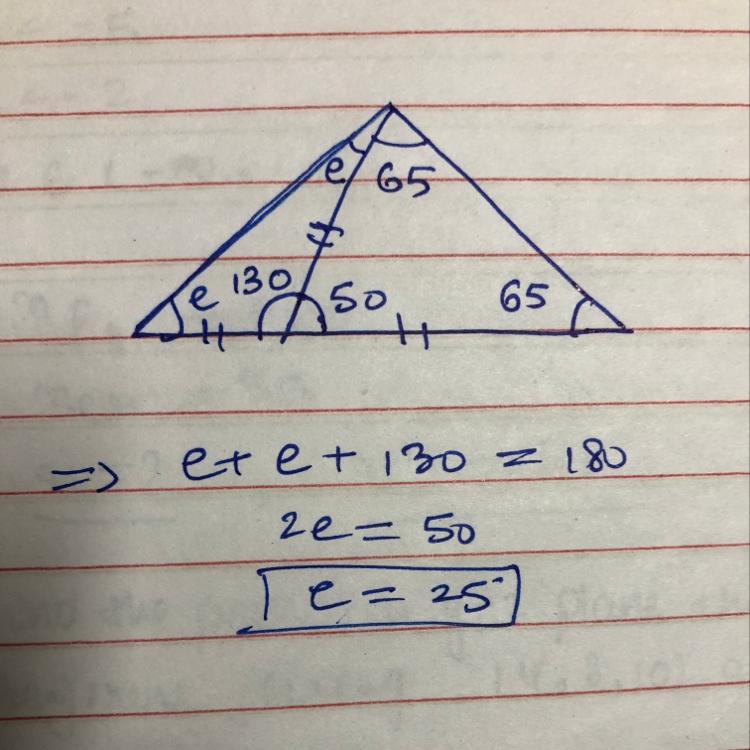 e 65
e 130 50 65
=> e + e + 130 = 180
2e = 50
e = 25°